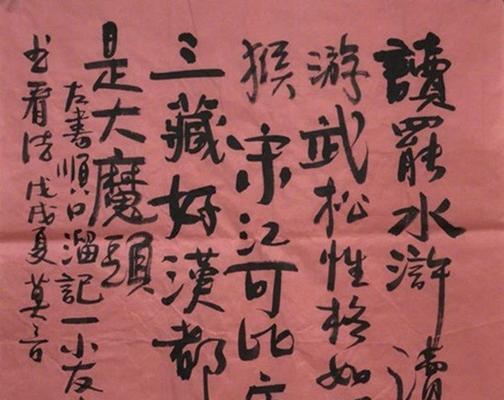 讀罷水滸讀
游武松性格如
猴宋江可比唐
三藏好漢都
是大魔頭
左書順口溜記一小友
出看法戊戌夏莫言